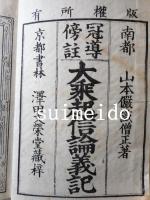 版權所有
南都 山本儼識僧正著
冠導
傍註
大乘起信論義記
京都書林 澤田文榮堂藏梓
suimeido